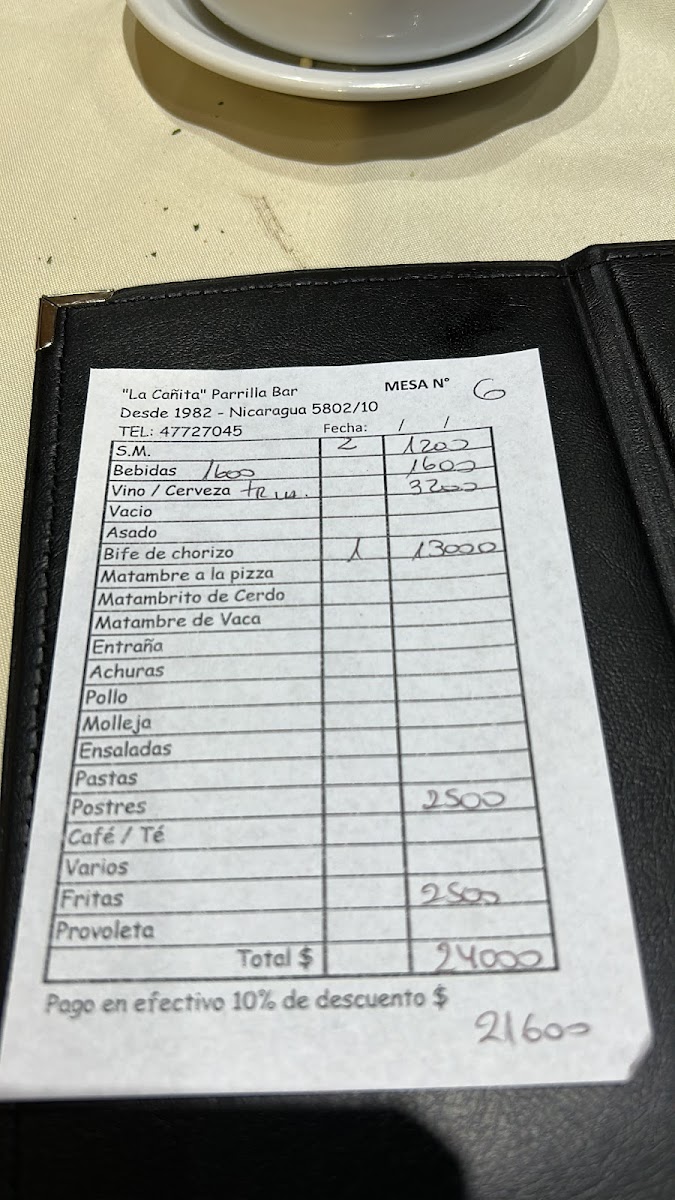 "La Cañita" Parrilla Bar MESA N° 6
Desde 1982 - Nicaragua 5802/10
TEL: 47727045 Fecha: / /
S.M. 2 1200
Bebidas 1600 1600
Vino / Cerveza 3200
Vacio
Asado
Bife de chorizo 1 13000
Matambre a la pizza
Matambrito de Cerdo
Matambre de Vaca
Entraña
Achuras
Pollo
Molleja
Ensaladas
Pastas
Postres 2500
Café / Té
Varios
Fritas 2500
Provoleta
Total $ 24000
Pago en efectivo 10% de descuento $
21600